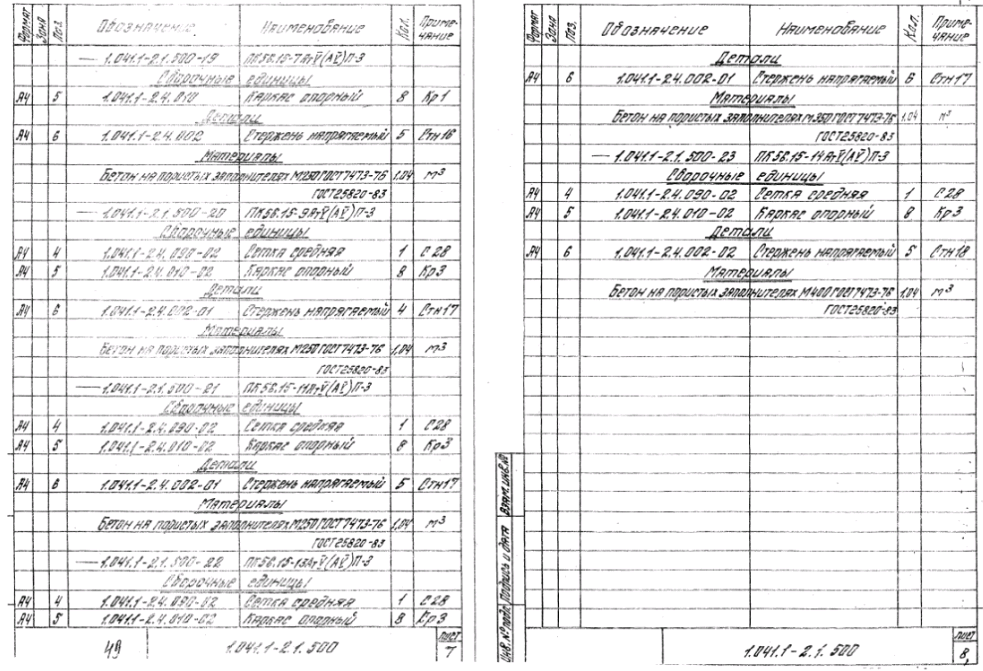 Формат Зона Поз. Обозначение Наименование Кол. Примечание
1.041.1-2.1.500-19 ПК56.15-7АтV(АV)П-3
Сборочные единицы
А4 5 1.041.1-2.4.010 Каркас опорный 8 Кр1
Детали
А4 6 1.041.1-2.4.002 Стержень напрягаемый 5 Стн16
Материалы
Бетон на пористых заполнителях М250 ГОСТ7473-76 1,04 м³
ГОСТ25820-83
1.041.1-2.1.500-20 ПК56.15-9АтV(АV)П-3
Сборочные единицы
А4 4 1.041.1-2.4.090-02 Сетка средняя 1 С28
А4 5 1.041.1-2.4.010-02 Каркас опорный 8 Кр3
Детали
А4 6 1.041.1-2.4.002-01 Стержень напрягаемый 4 Стн17
Материалы
Бетон на пористых заполнителях М250 ГОСТ7473-76 1,04 м³
ГОСТ25820-83
1.041.1-2.1.500-21 ПК56.15-11АтV(АV)П-3
Сборочные единицы
А4 4 1.041.1-2.4.090-02 Сетка средняя 1 С28
А4 5 1.041.1-2.4.010-02 Каркас опорный 8 Кр3
Детали
А4 6 1.041.1-2.4.002-01 Стержень напрягаемый 5 Стн17
Материалы
Бетон на пористых заполнителях М250 ГОСТ7473-76 1,04 м³
ГОСТ25820-83
1.041.1-2.1.500-22 ПК56.15-13АтV(АV)П-3
Сборочные единицы
А4 4 1.041.1-2.4.090-02 Сетка средняя 1 С28
А4 5 1.041.1-2.4.010-02 Каркас опорный 8 Кр3
49 1.041.1-2.1.500 Лист 7
Формат Зона Поз. Обозначение Наименование Кол. Примечание
Детали
А4 6 1.041.1-2.4.002-01 Стержень напрягаемый 6 Стн17
Материалы
Бетон на пористых заполнителях М350 ГОСТ7473-76 1,04 м³
ГОСТ25820-83
1.041.1-2.1.500-23 ПК56.15-14АтV(АV)П-3
Сборочные единицы
А4 4 1.041.1-2.4.090-02 Сетка средняя 1 С28
А4 5 1.041.1-2.4.010-02 Каркас опорный 8 Кр3
Детали
А4 6 1.041.1-2.4.002-02 Стержень напрягаемый 5 Стн18
Материалы
Бетон на пористых заполнителях М400 ГОСТ7473-76 1,04 м³
ГОСТ25820-83
Инв. № подл. Подпись и дата Взам. инв. №
1.041.1-2.1.500 Лист 8